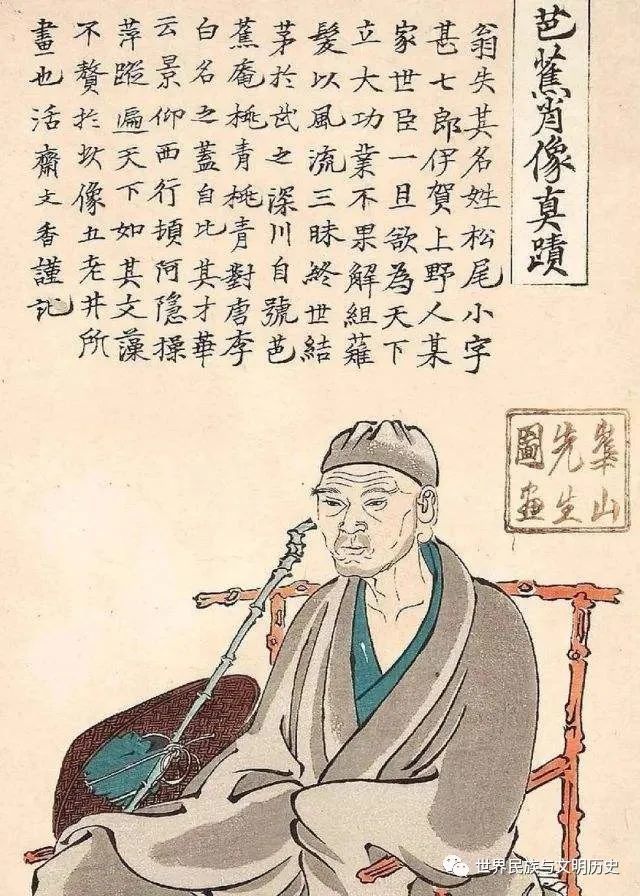 芭蕉肖像真蹟
翁失其名姓松尾小字
甚七郎伊賀上野人某
家世臣一旦欲為天下
立大功業不果解組薙
髮以風流三昧終世結
茅於武之深川自號芭
蕉庵桃青桃青對唐李
白名之蓋自比其才華
云景仰西行頓阿隠操
萍蹤遍天下如其文藻
不贅於像五老井所
畫也活齋文香謹記
崋山
先生
圖畫
世界民族与文明历史